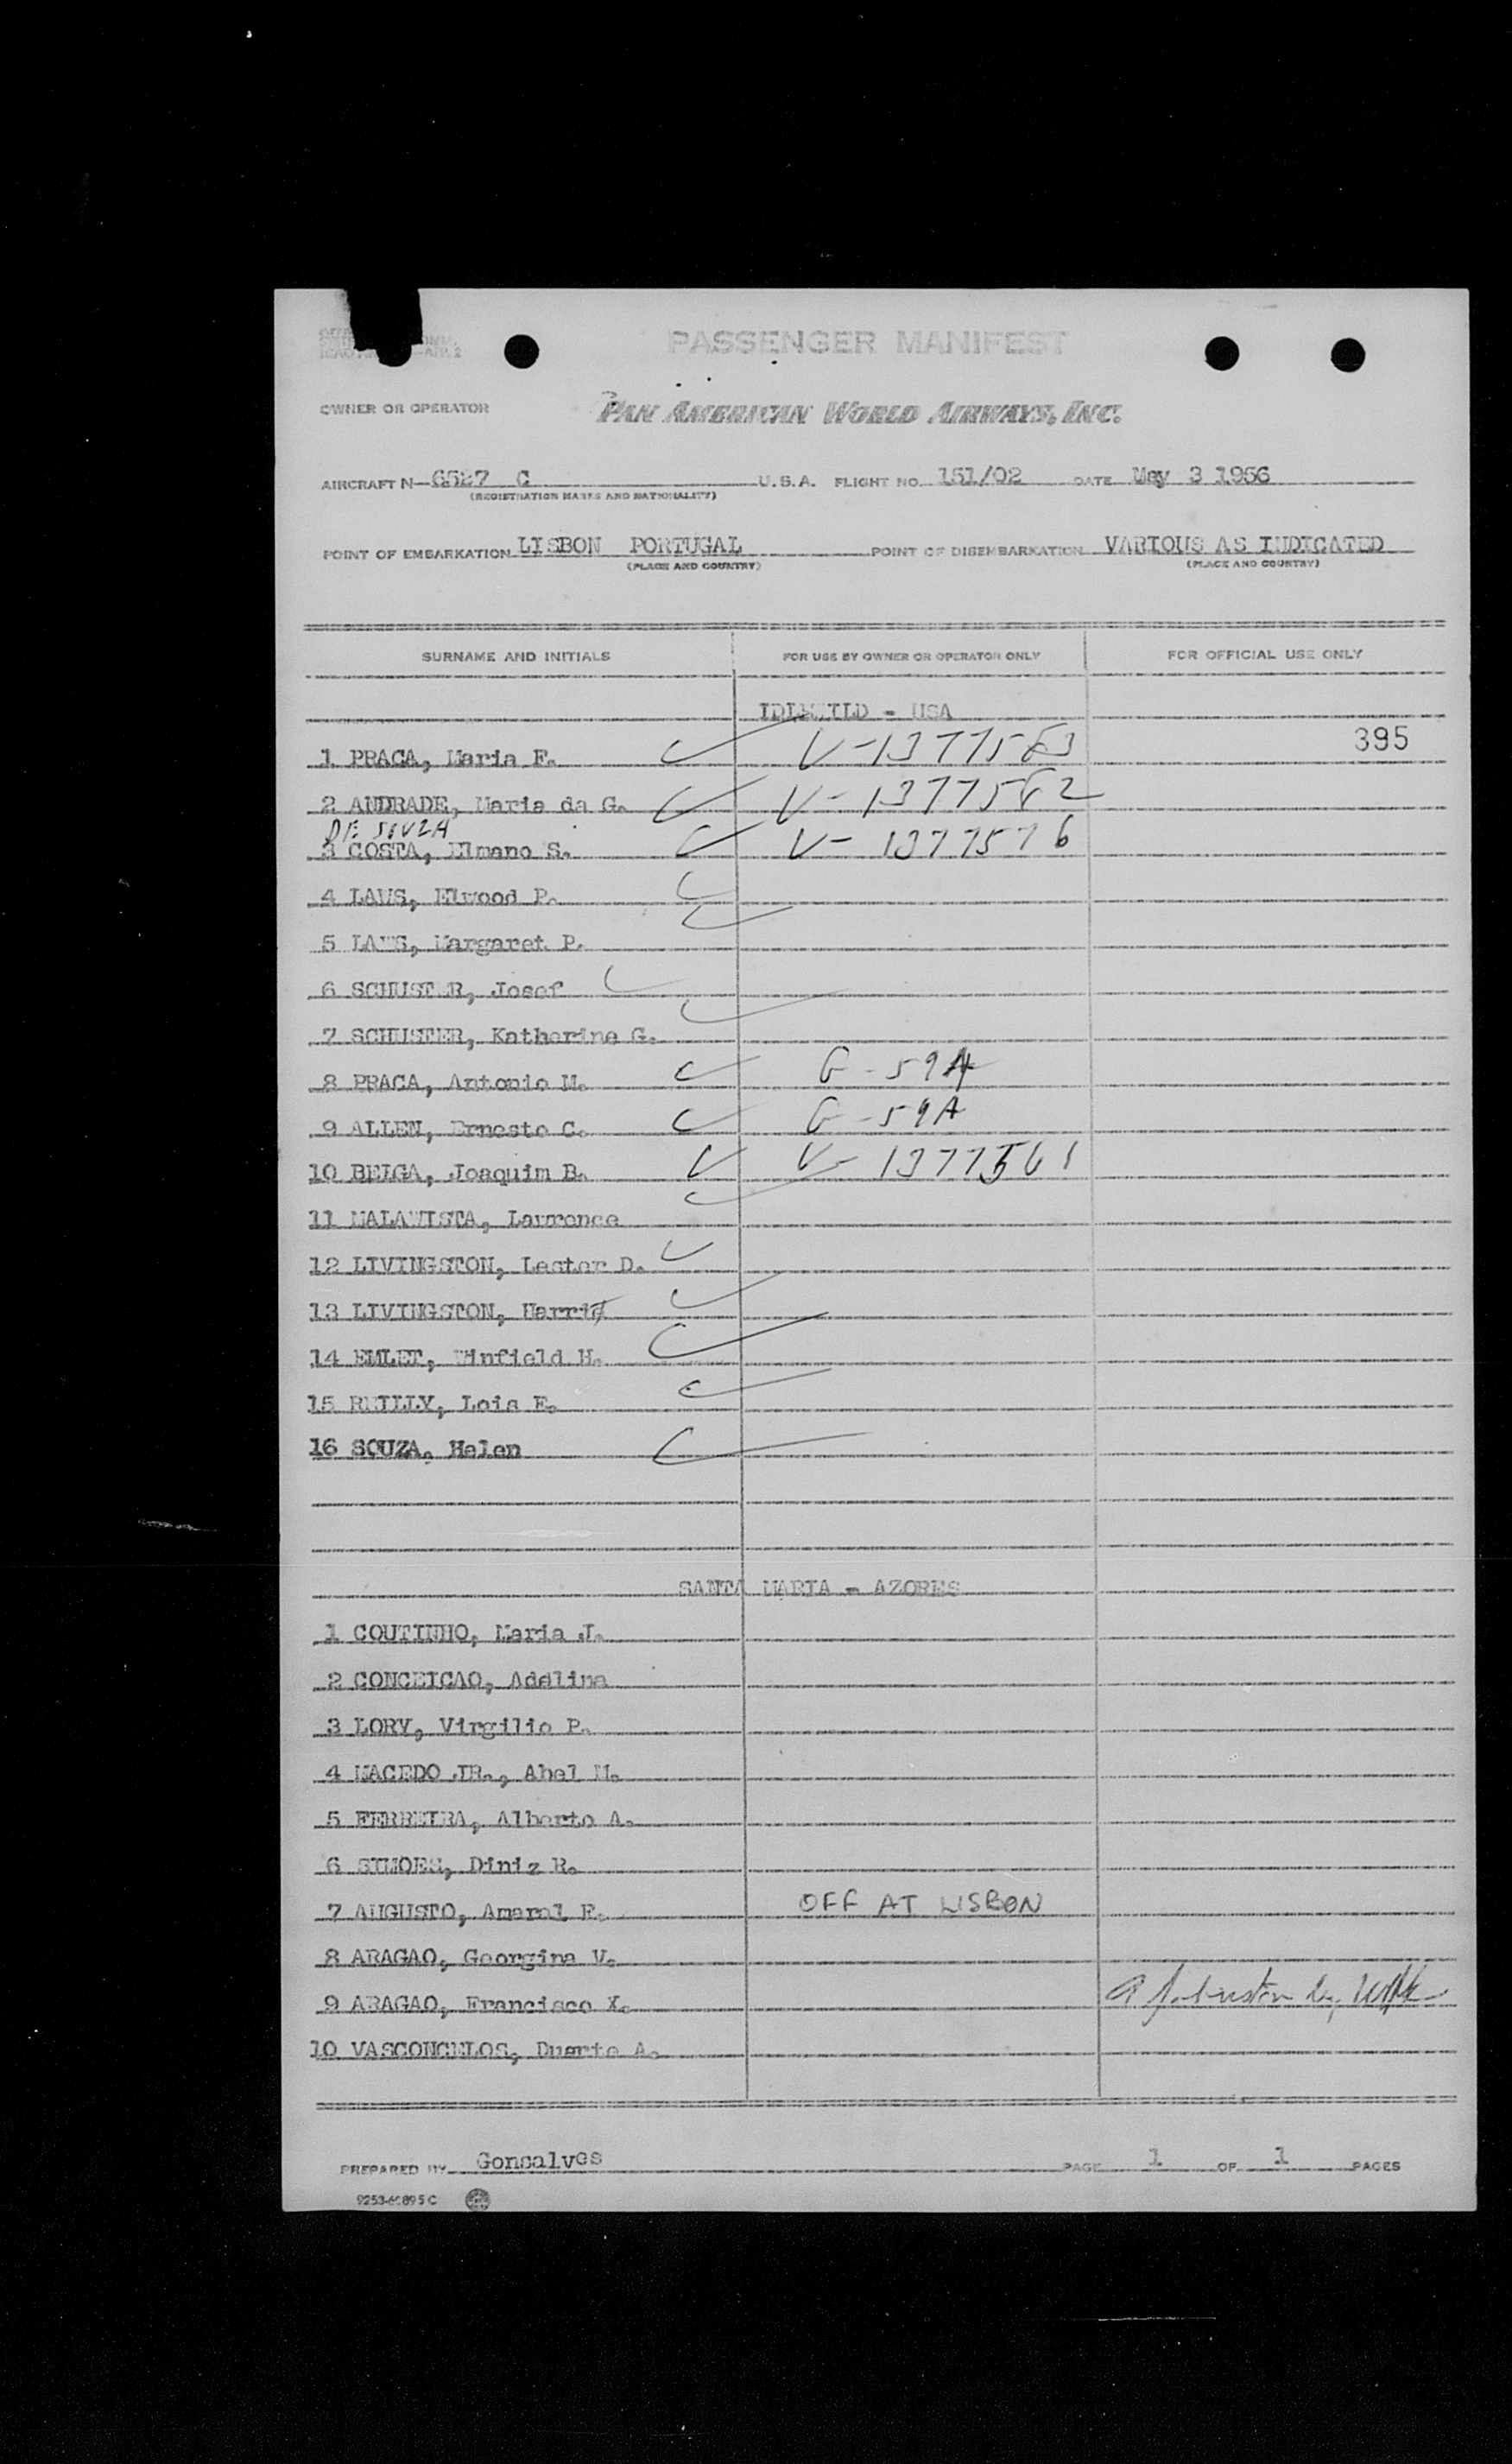 PASSENGER MANIFEST
OWNER OR OPERATOR PAN AMERICAN WORLD AIRWAYS, INC.
AIRCRAFT N- C U.S.A. FLIGHT NO. 151/02 DATE May 3 1956
(REGISTRATION MARKS AND NATIONALITY)
POINT OF EMBARKATION LISBON PORTUGAL POINT OF DISEMBARKATION VARIOUS AS INDICATED
(PLACE AND COUNTRY) (PLACE AND COUNTRY)
SURNAME AND INITIALS FOR USE BY OWNER OR OPERATOR ONLY FOR OFFICIAL USE ONLY
IDLEWILD - USA
1 PRACA, Maria F. V-1377563 395
2 ANDRADE, Maria da G. V-1377562
DE SOUZA
3 COSTA, Elmano S. V-1377576
4 LAWS, Elwood P.
5 LAWS, Margaret P.
6 SCHUSTER, Josef
7 SCHUSTER, Katherine G.
8 PRACA, Antonio M. G-59A
9 ALLEN, Ernesto C. G-59A
10 BEIGA, Joaquim B. V-1377561
11 MALAWISTA, Lawrence
12 LIVINGSTON, Lester D.
13 LIVINGSTON,
14 EMLET, Winfield H.
15 REILLY, Lois E.
16 SOUZA, Helen
SANTA MARIA - AZORES
1 COUTINHO, Maria J.
2 CONCEICAO, Adelina
3 LORY, Virgilio P.
4 MACEDO JR., Abel M.
5 FERREIRA, Alberto A.
6 SIMOES, Diniz R.
7 AUGUSTO, Amaral F. OFF AT LISBON
8 ARAGAO, Georgina V.
9 ARAGAO, Francisco X.
10 VASCONCELOS, Duarte A.
PREPARED BY Goncalves PAGE 1 OF 1 PAGES